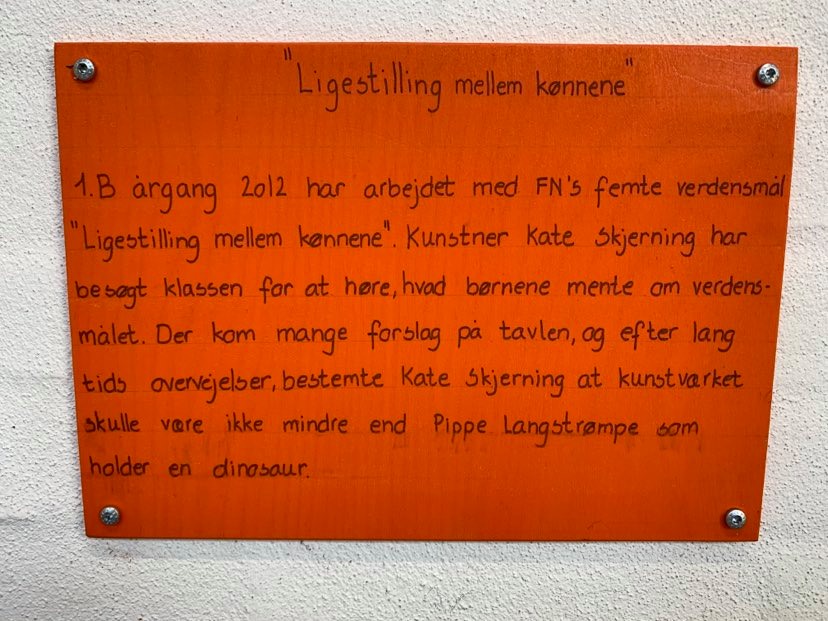 "Ligestilling mellem kønnene"
1.B årgang 2012 har arbejdet med FN's femte verdensmål
"Ligestilling mellem kønnene". Kunstner Kate Skjerning har
besøgt klassen for at høre, hvad børnene mente om verdens-
målet. Der kom mange forslag på tavlen, og efter lang
tids overvejelser, bestemte Kate Skjerning at kunstværket
skulle være ikke mindre end Pippe Langstrømpe som
holder en dinosaur.